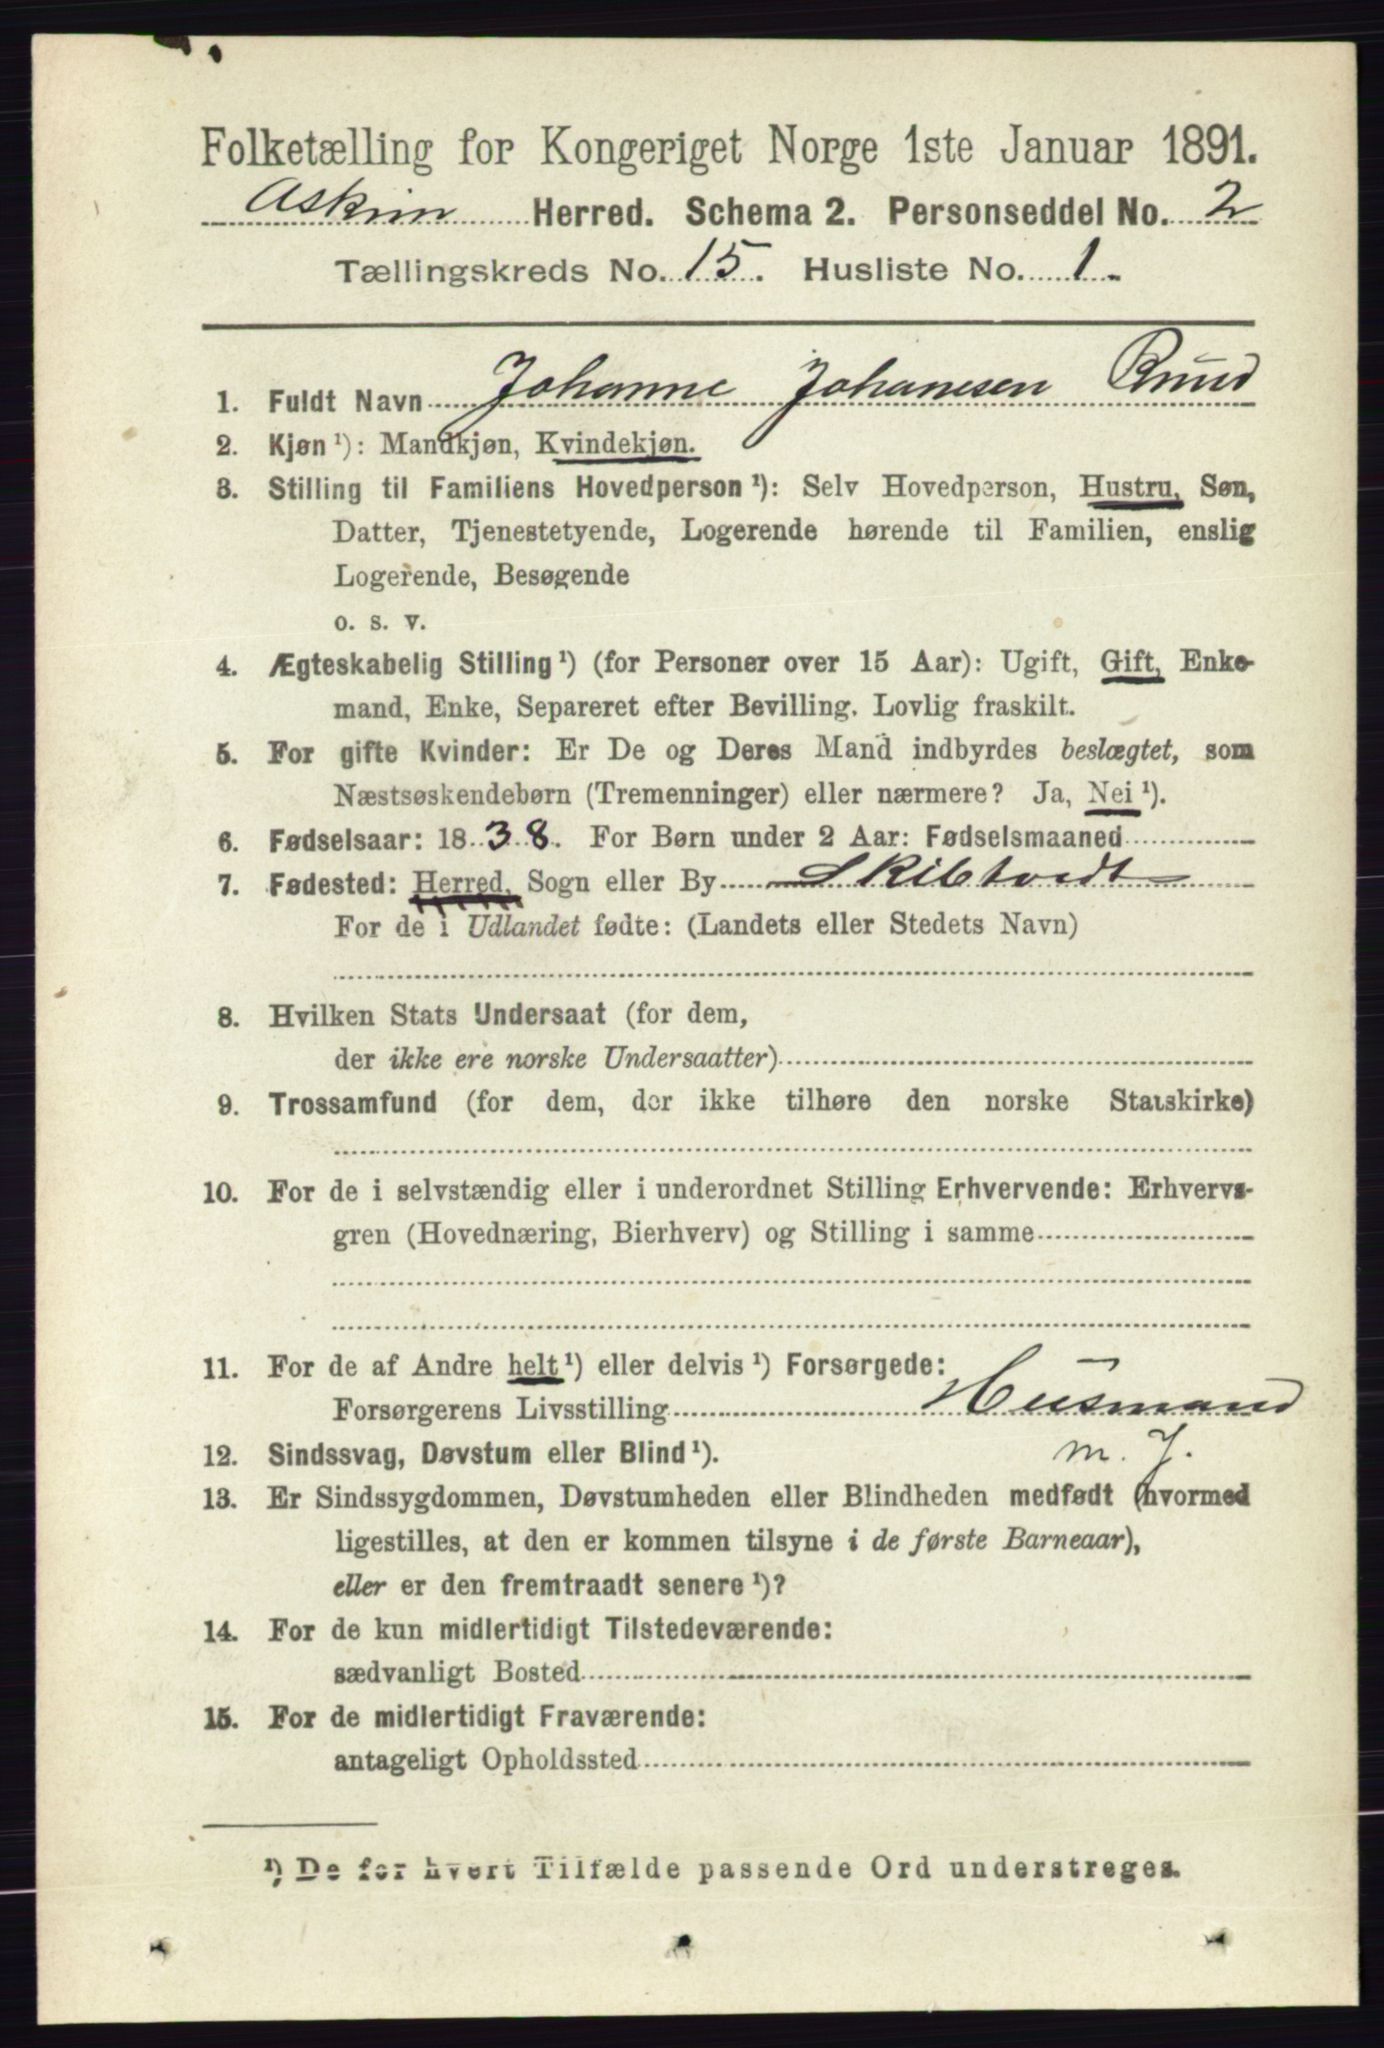 Folketælling for Kongeriget Norge 1ste Januar 1891.
Askim Herred. Schema 2. Personseddel No. 2
Tællingskreds No. 15. Husliste No. 1.
1. Fuldt Navn Johanne Johanesen Ruud
2. Kjøn ¹): Mandkjøn, Kvindekjøn.
3. Stilling til Familiens Hovedperson ¹): Selv Hovedperson, Hustru, Søn,
Datter, Tjenestetyende, Logerende hørende til Familien, enslig
Logerende, Besøgende
o. s. v.
4. Ægteskabelig Stilling ¹) (for Personer over 15 Aar): Ugift, Gift, Enke-
mand, Enke, Separeret efter Bevilling. Lovlig fraskilt.
5. For gifte Kvinder: Er De og Deres Mand indbyrdes beslægtet, som
Næstsøskendebørn (Tremenninger) eller nærmere? Ja, Nei ¹).
6. Fødselsaar: 1838. For Børn under 2 Aar: Fødselsmaaned
7. Fødested: Herred, Sogn eller By Skibtvedt
For de i Udlandet fødte: (Landets eller Stedets Navn)
8. Hvilken Stats Undersaat (for dem,
der ikke ere norske Undersaatter)
9. Trossamfund (for dem, der ikke tilhøre den norske Statskirke)
10. For de i selvstændig eller i underordnet Stilling Erhvervende: Erhvervs-
gren (Hovednæring, Bierhverv) og Stilling i samme
11. For de af Andre helt ¹) eller delvis ¹) Forsørgede:
Forsørgerens Livsstilling Husmand
12. Sindssvag, Døvstum eller Blind ¹). m. J.
13. Er Sindssygdommen, Døvstumheden eller Blindheden medfødt (hvormed
ligestilles, at den er kommen tilsyne i de første Barneaar),
eller er den fremtraadt senere ¹)?
14. For de kun midlertidigt Tilstedeværende:
sædvanligt Bosted
15. For de midlertidigt Fraværende:
antageligt Opholdssted
¹) De for hvert Tilfælde passende Ord understreges.